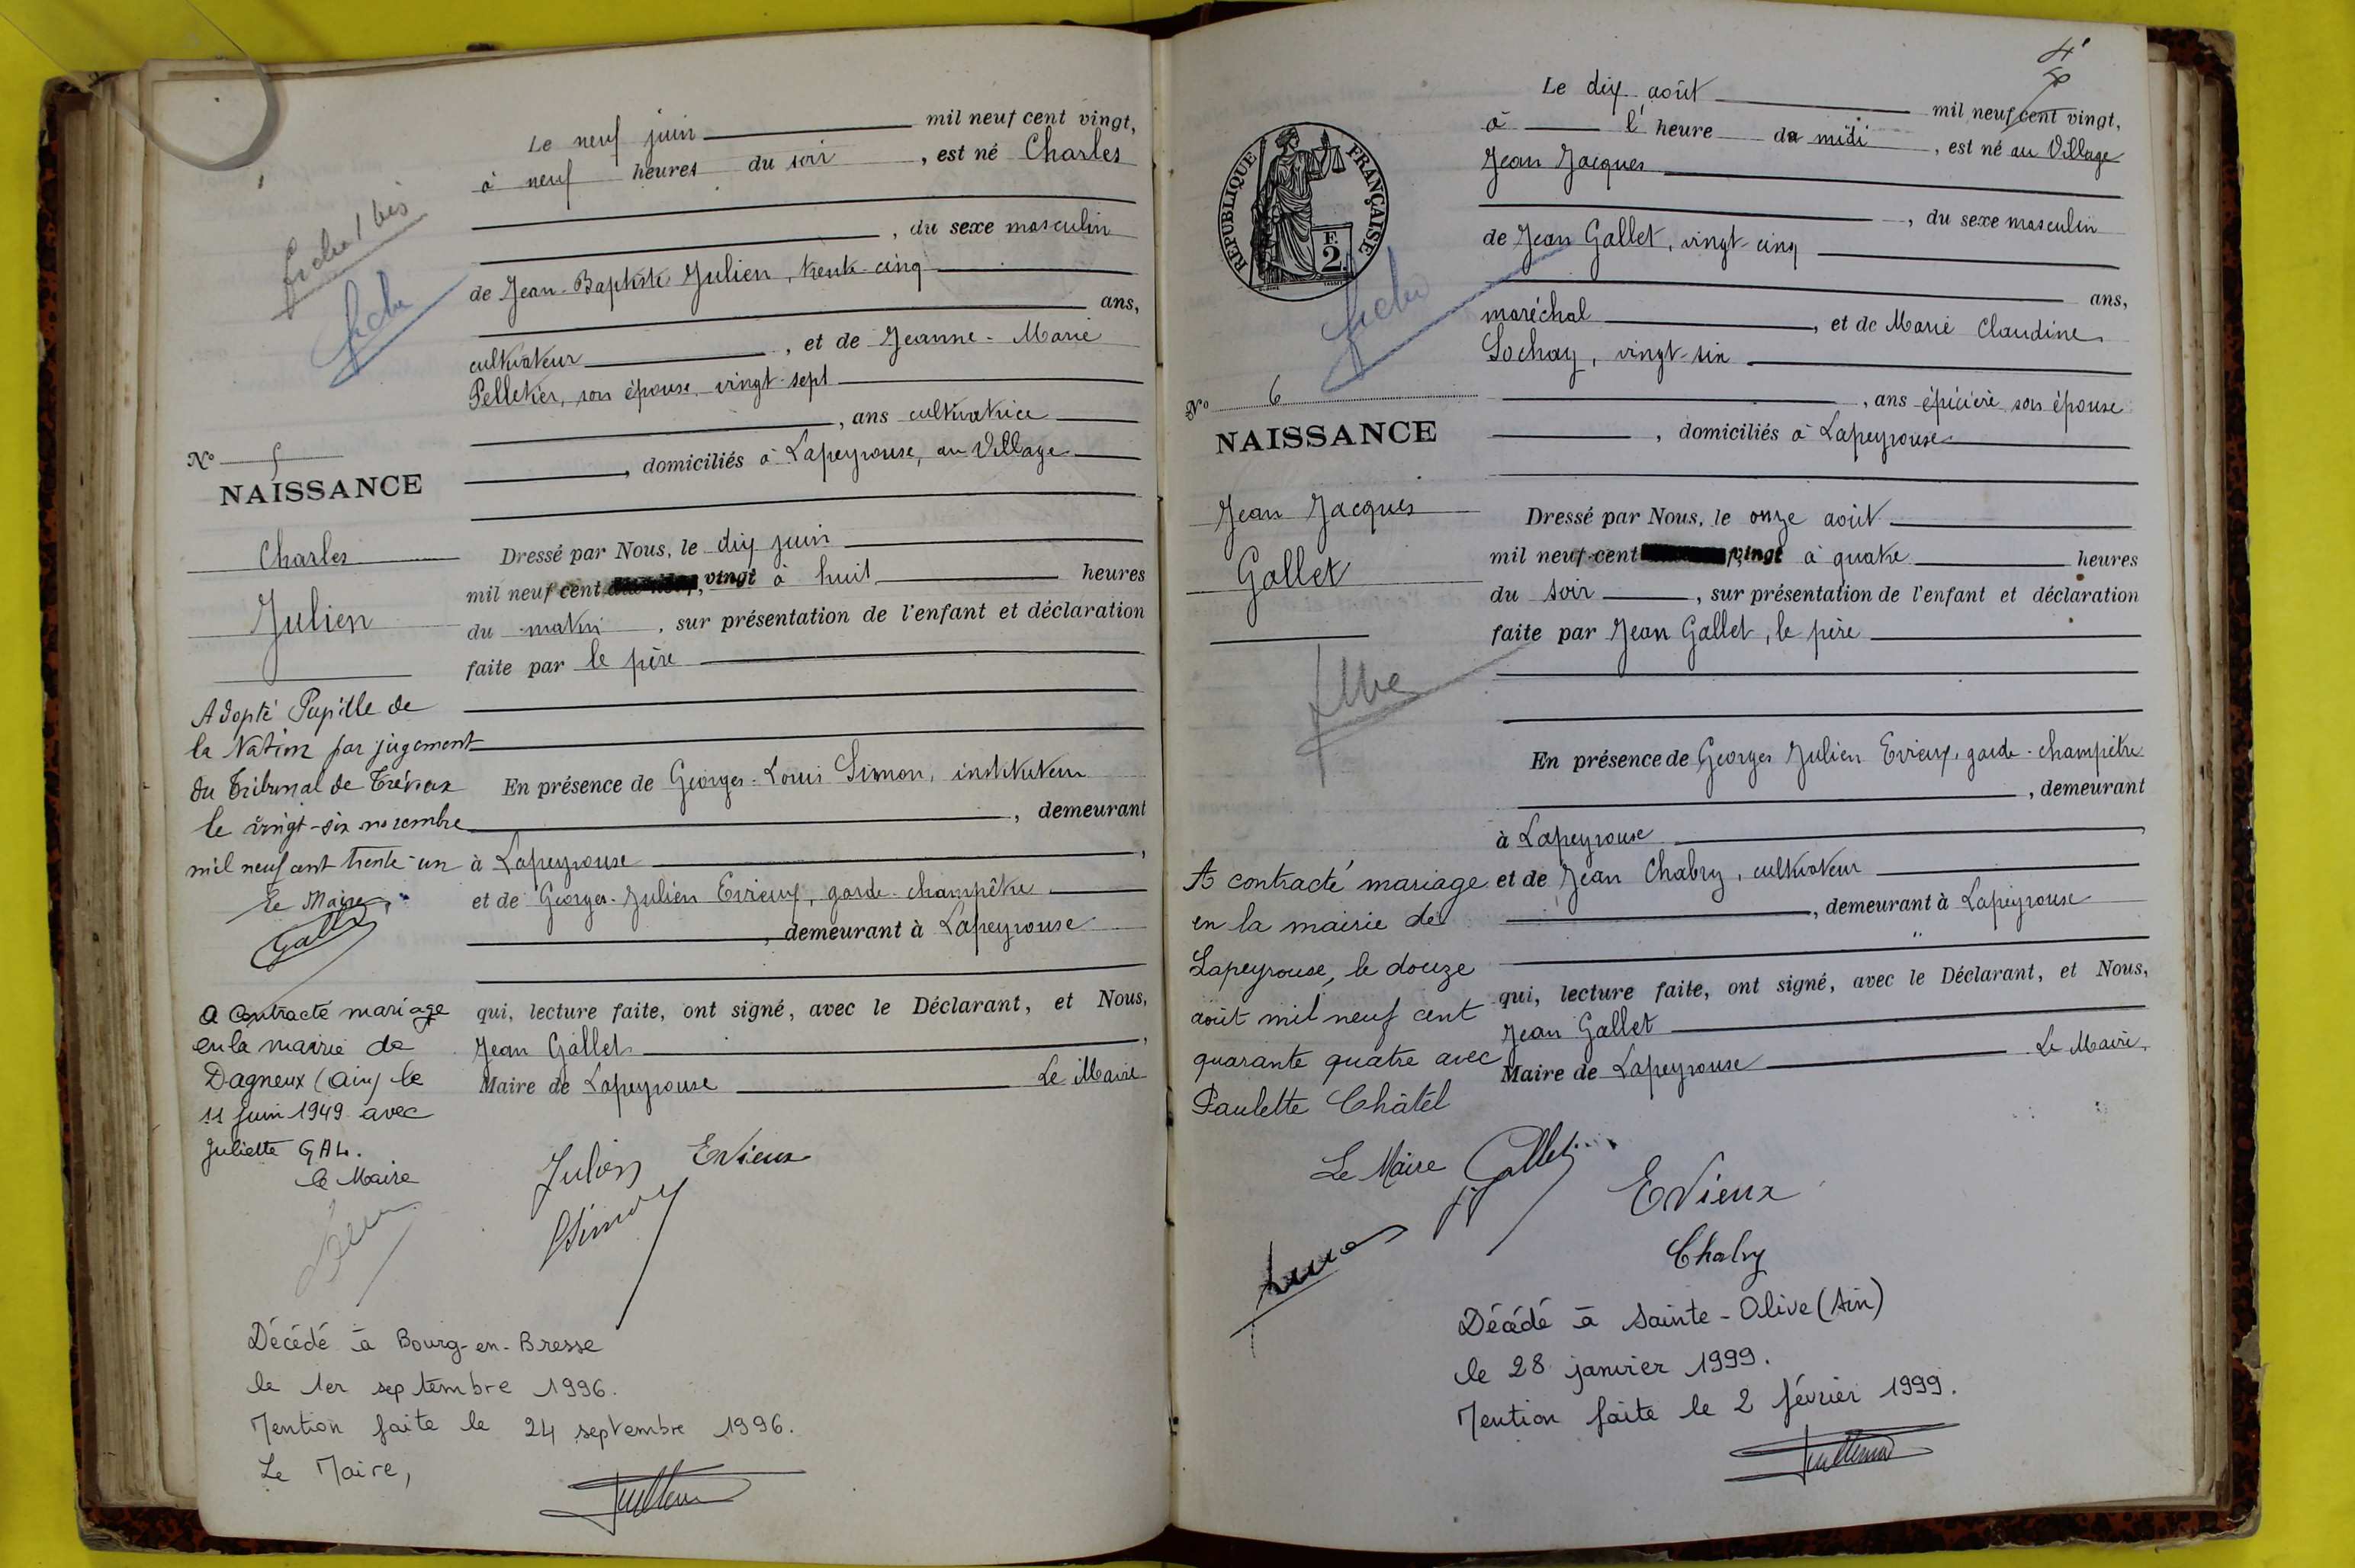 Le neuf juin mil neuf cent vingt,
à neuf heures du soir, est né Charles
, du sexe masculin
de Jean-Baptiste Julien, trente-cinq
ans,
cultivateur, et de Jeanne-Marie
Pelletier, son épouse, vingt-sept
, ans cultivatrice
, domiciliés à Lapeyrouse, au Village
Dressé par Nous, le dix juin
mil neuf cent vingt à huit heures
du matin, sur présentation de l'enfant et déclaration
faite par le père
En présence de Georges-Louis Simon, instituteur
, demeurant
à Lapeyrouse,
et de Georges-Julien Evieux, garde-champêtre
, demeurant à Lapeyrouse
qui, lecture faite, ont signé, avec le Déclarant, et Nous,
Jean Gallet,
Maire de Lapeyrouse Le Maire
Julien Evieux
Simon
fiche
No 5
NAISSANCE
Charles
Julien
Adopté Pupille de
la Nation par jugement
du Tribunal de Trévoux
le vingt-six novembre
mil neuf cent trente-un
Le Maire,
Gallet
A contracté mariage
en la mairie de
Dagneux (Ain) le
11 juin 1949 avec
Juliette GAL.
le Maire
Décédé à Bourg-en-Bresse
le 1er septembre 1996.
Mention faite le 24 septembre 1996.
Le Maire,
4
Le dix août mil neuf cent vingt,
à l'heure de midi, est né au Village
Jean Jacques
, du sexe masculin
de Jean Gallet, vingt-cinq
ans,
maréchal, et de Marie Claudine
Sochay, vingt-six
, ans épicière son épouse
, domiciliés à Lapeyrouse
Dressé par Nous, le onze août
mil neuf cent vingt à quatre heures
du soir, sur présentation de l'enfant et déclaration
faite par Jean Gallet, le père
En présence de Georges Julien Evieux, garde-champêtre
, demeurant
à Lapeyrouse
et de Jean Chabry, cultivateur
, demeurant à Lapeyrouse
qui, lecture faite, ont signé, avec le Déclarant, et Nous,
Jean Gallet
Maire de Lapeyrouse Le Maire,
RÉPUBLIQUE FRANÇAISE
F.
2
fiche
No 6
NAISSANCE
Jean Jacques
Gallet
A contracté mariage
en la mairie de
Lapeyrouse, le douze
août mil neuf cent
quarante quatre avec
Paulette Châtel
Le Maire Gallet
Evieux
Chabry
Décédé à Sainte-Olive (Ain)
le 28 janvier 1999.
Mention faite le 2 février 1999.